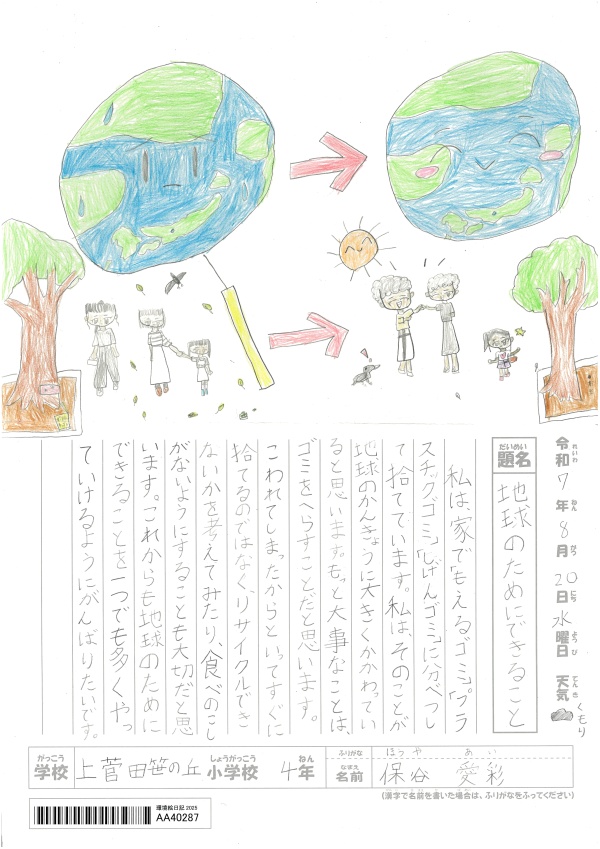 令和7年8月20日水曜日 天気 くもり
れいわ ねん がつ にち ようび てんき
だいめい
題名 地球のためにできること
私は、家で「もえるゴミ」「プラ
スチックゴミ」「しげんゴミ」に分べつし
て捨てています。私は、そのことが
地球のかんきょうに大きくかかわってい
ると思います。もっと大事なことは、
ゴミをへらすことだと思います。
こわれてしまったからといってすぐに
捨てるのではなく、リサイクルでき
ないかを考えてみたり、食べのこし
がないようにすることも大切だと思
います。これからも地球のために
できることを一つでも多くやっ
ていけるようにがんばりたいです。
がっこう しょうがっこう ねん
学校 上菅田笹の丘 小学校 4年
ふりがな ほうや あい
なまえ
名前 保谷 愛彩
(漢字で名前を書いた場合は、ふりがなをふってください)
環境絵日記 2025
AA40287